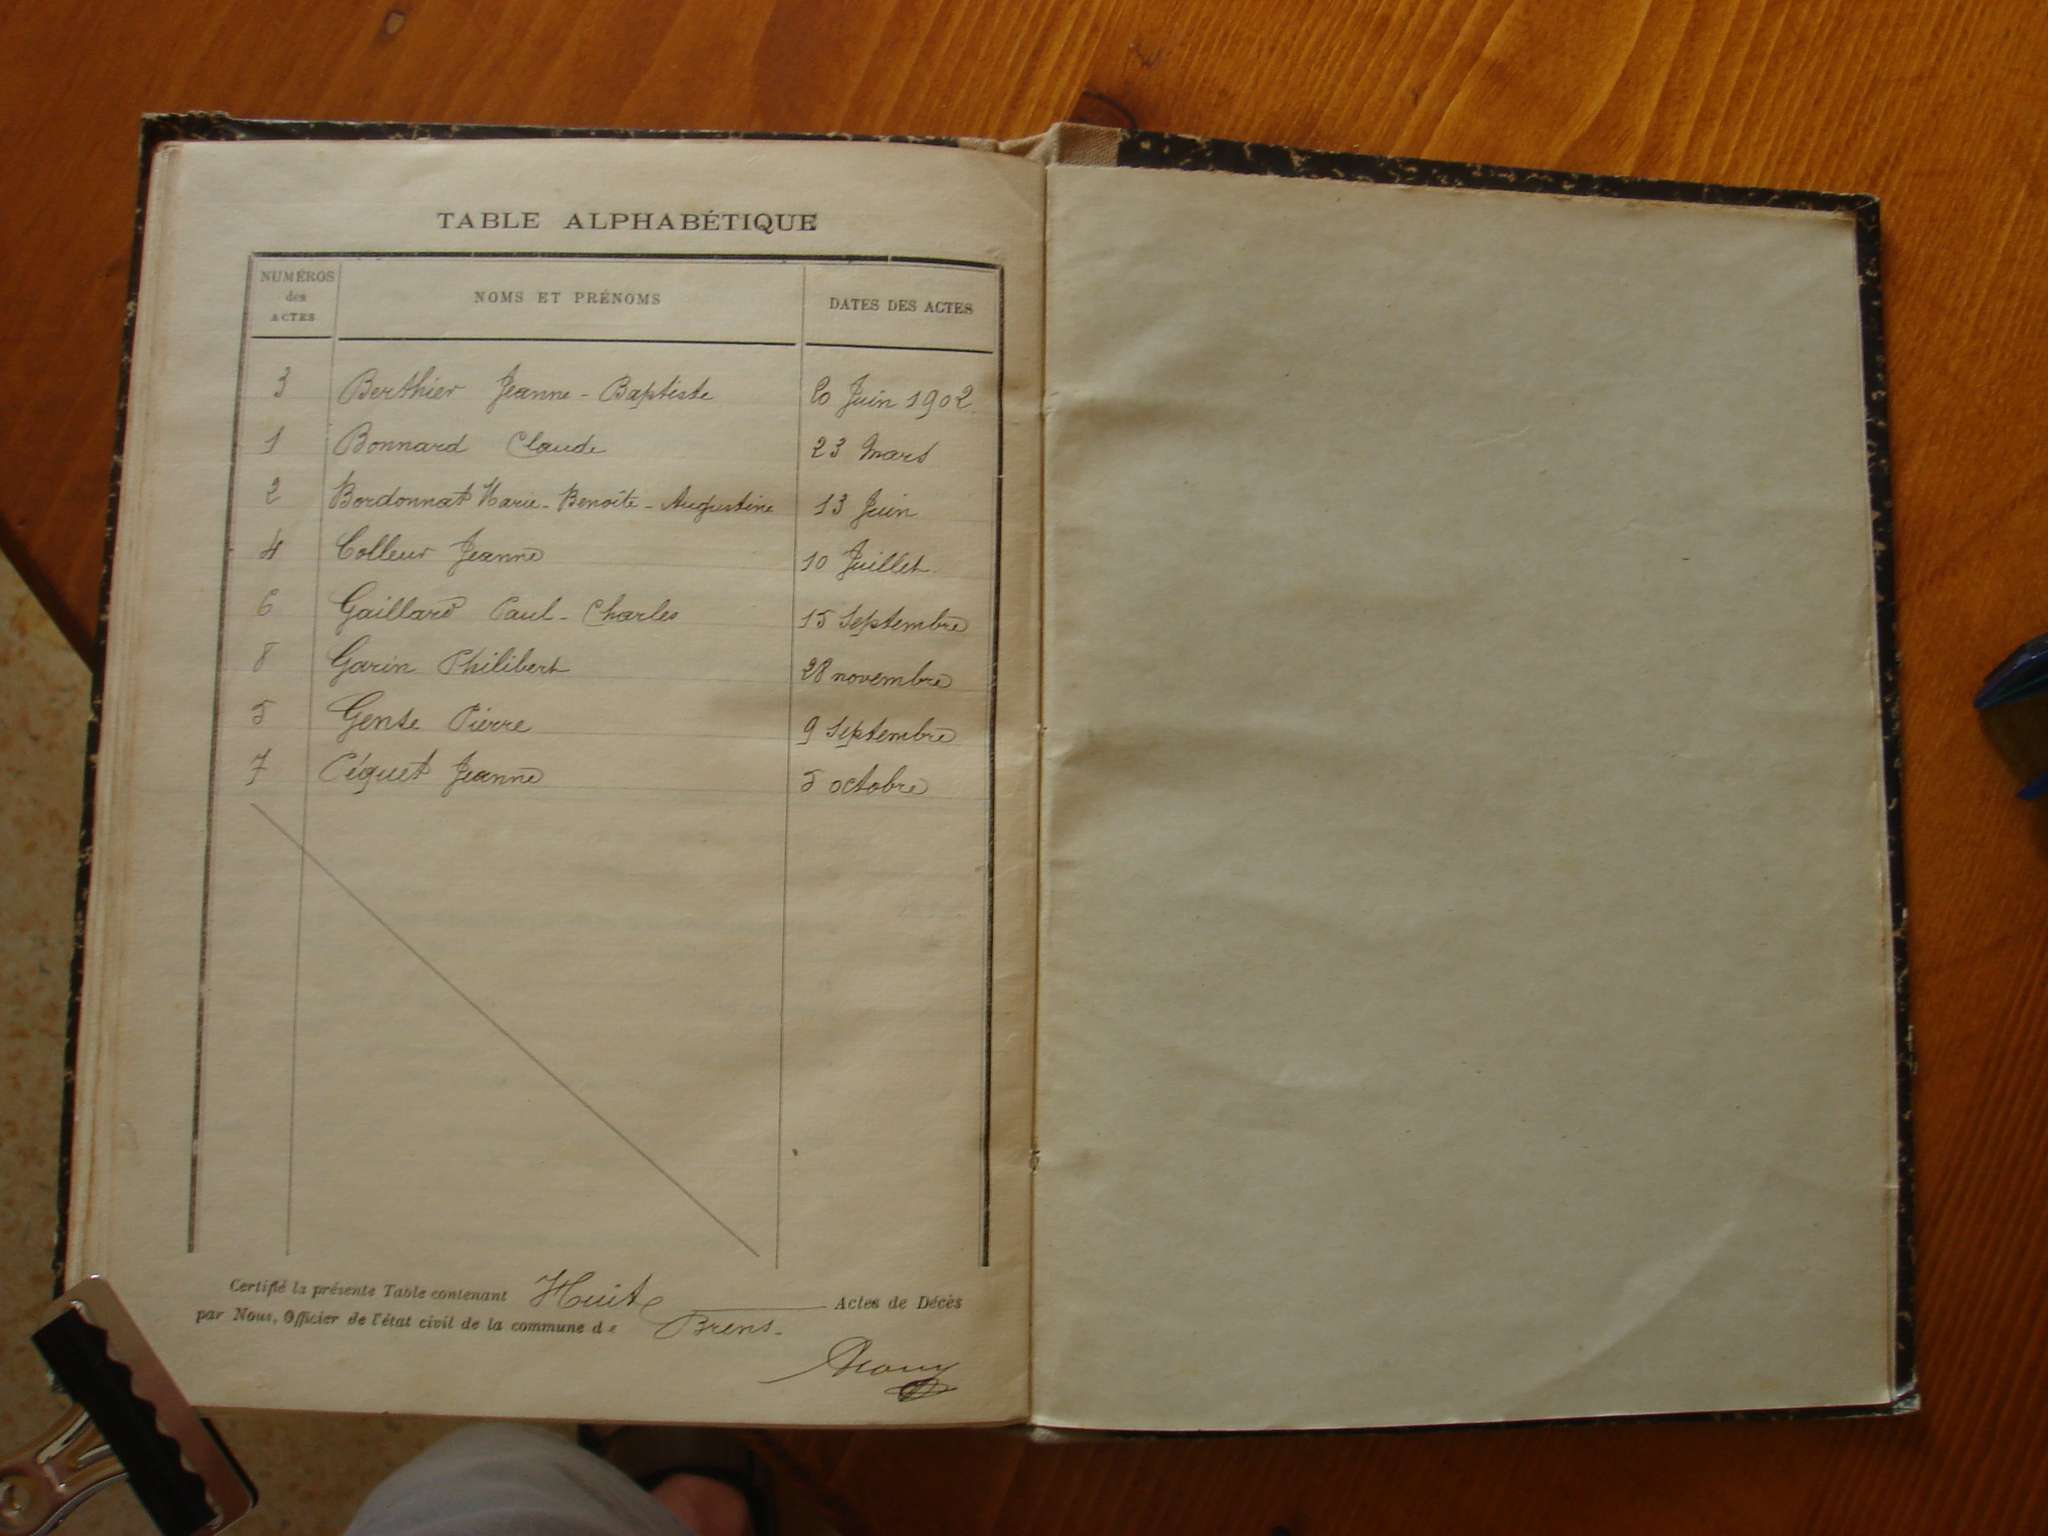 TABLE ALPHABÉTIQUE
NUMÉROS des ACTES NOMS ET PRÉNOMS DATES DES ACTES
3 Berthier Jeanne-Baptiste 20 Juin 1902
1 Bonnard Claude 23 Mars
2 Bordonnat Marie-Benoîte-Augustine 13 Juin
4 Colleur Jeanne 10 Juillet
6 Gaillard Paul-Charles 15 Septembre
8 Garin Philibert 28 novembre
5 Gente Pierre 9 Septembre
7 Péquet Jeanne 5 octobre
Certifié la présente Table contenant Huit Actes de Décès
par Nous, Officier de l'état civil de la commune de Brens.